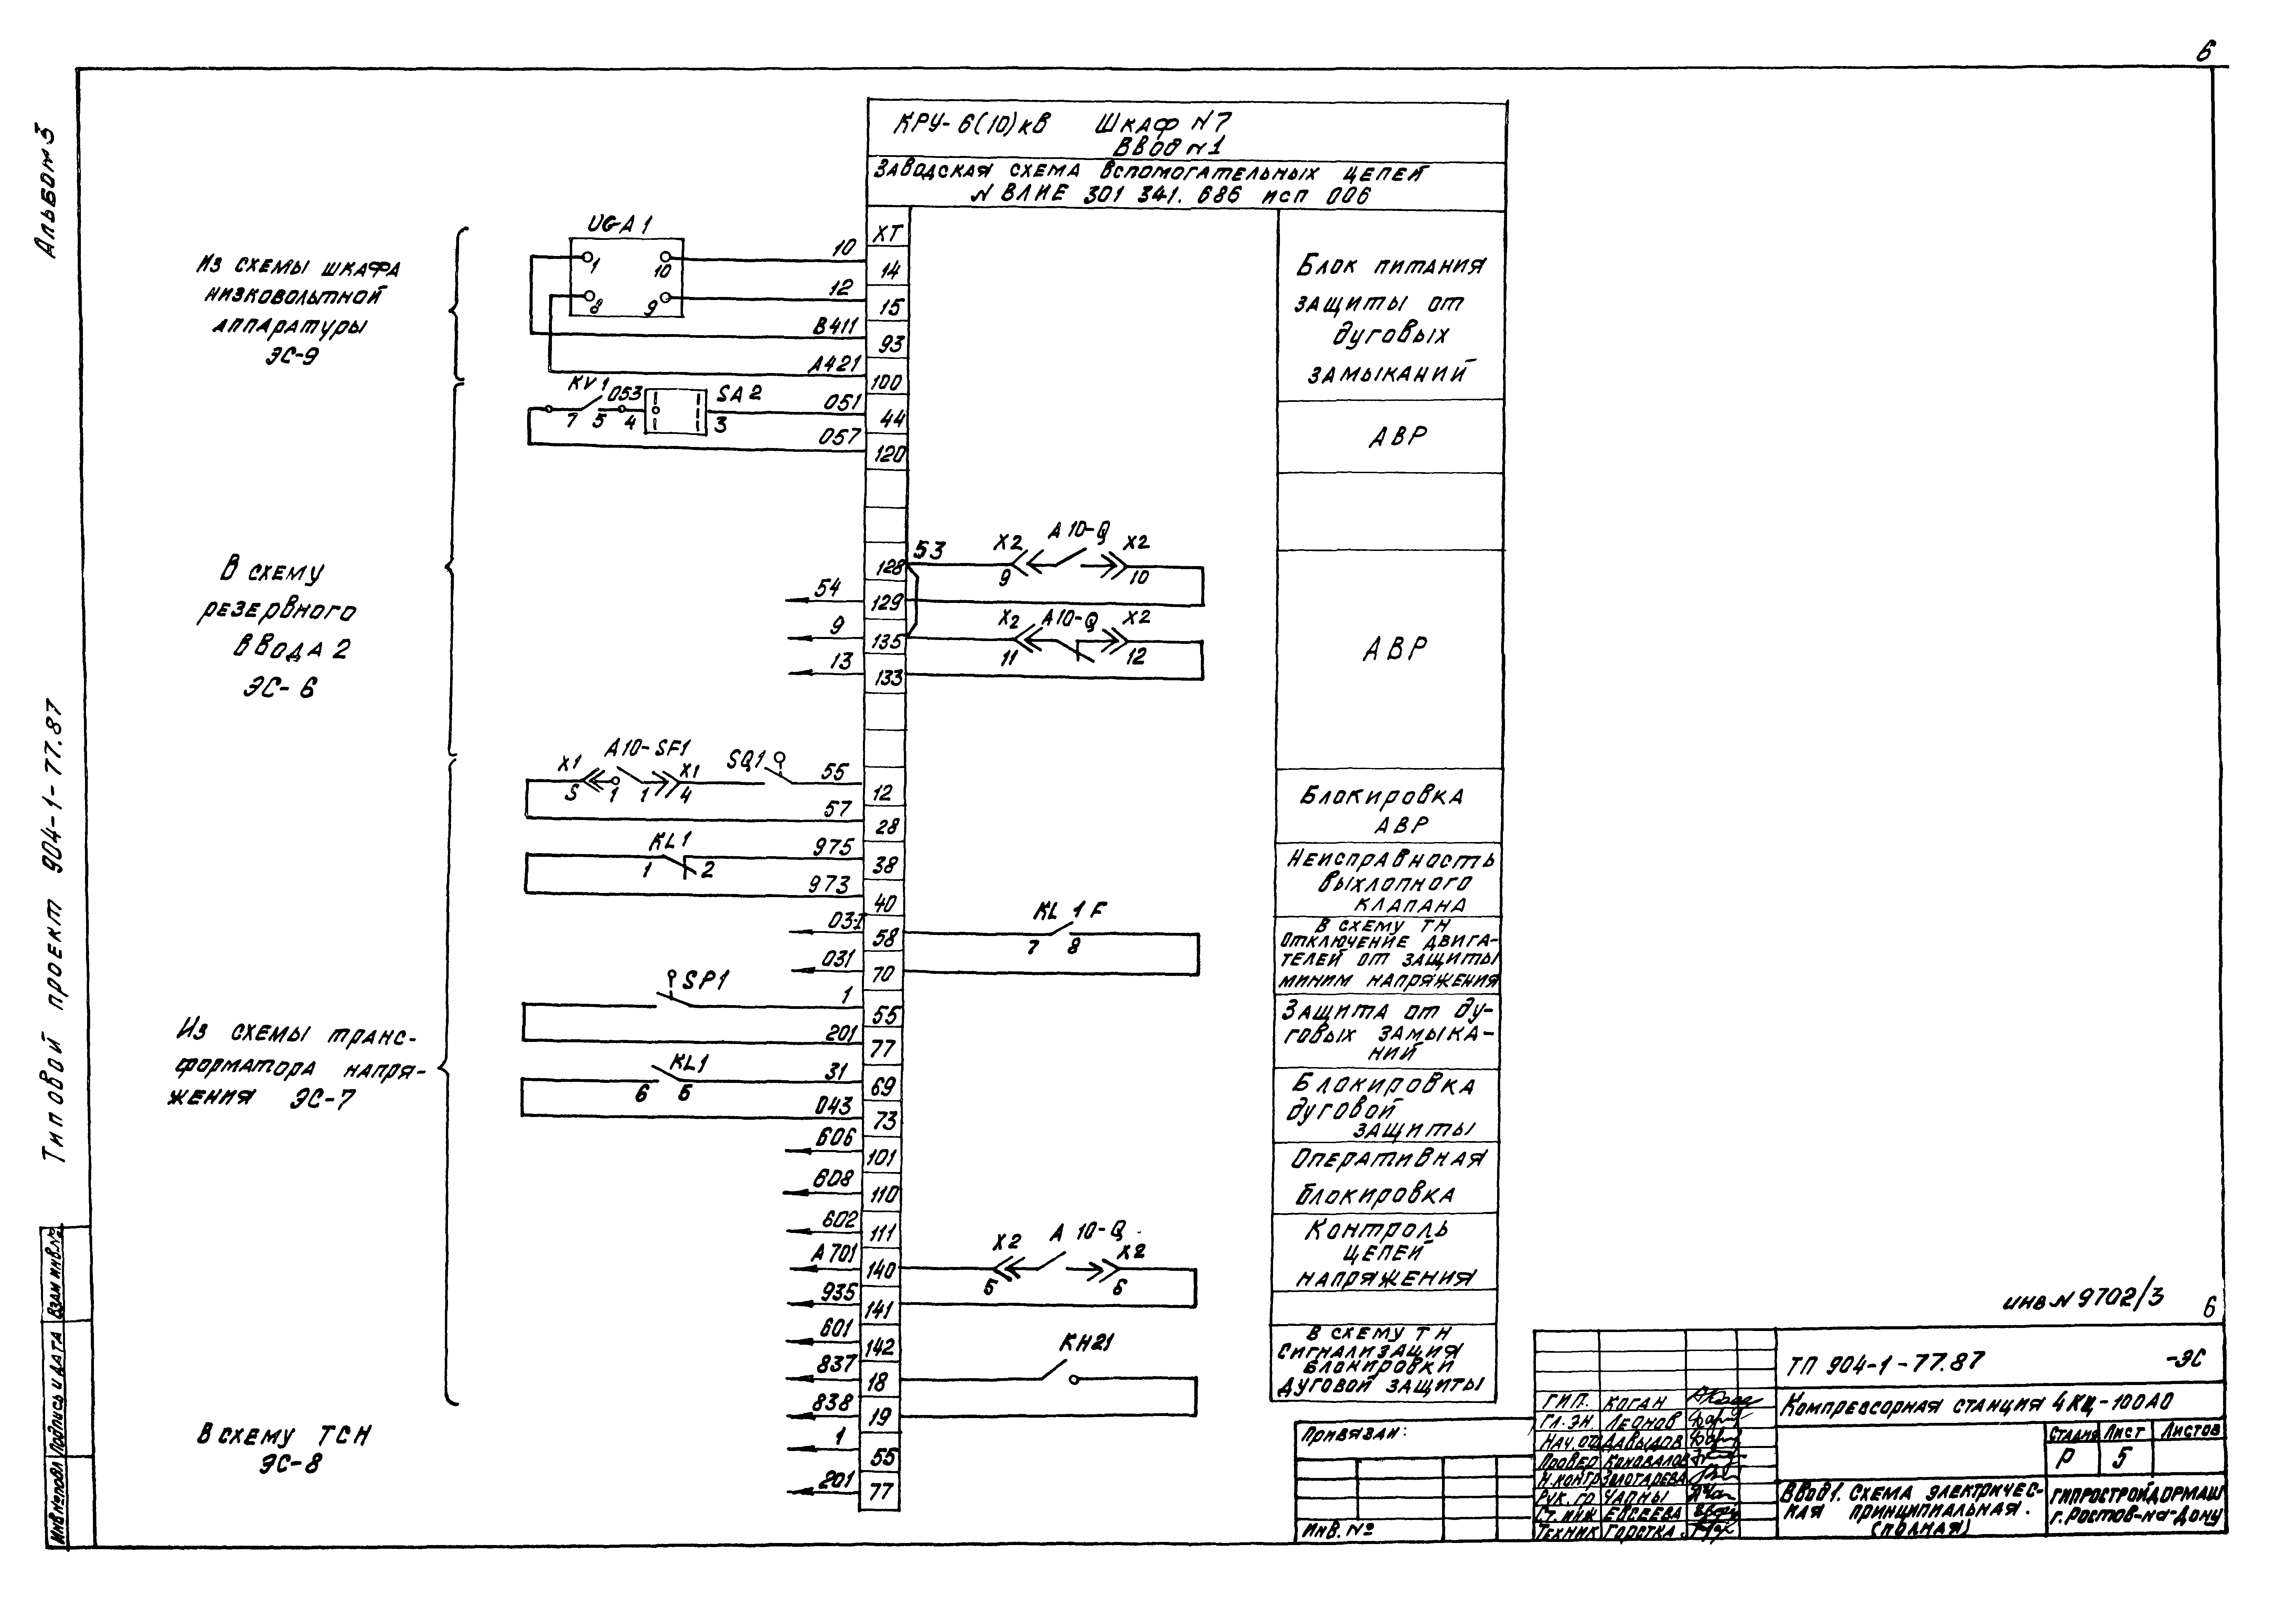 6
Альбом 3
Типовой проект 904-1-77.87
КРУ-6(10)кВ Шкаф N7
Ввод N1
Заводская схема вспомогательных цепей
N ВЛИЕ 301 341. 686 исп 006
Из схемы шкафа
низковольтной
аппаратуры
ЭС-9
В схему
резервного
ввода 2
ЭС-6
Из схемы транс-
форматора напря-
жения ЭС-7
В схему ТСН
ЭС-8
UGA1
1 10
8 9
KV1 053 SA2
7 5 4 3
XT
10 14
12 15
B411 93
A421 100
051 44
057 120
128 53 X2 A10-Q X2
9 10
54 129
9 135 X2 A10-Q X2
11 12
13 133
X1 A10-SF1 X1 SQ1 55 12
S 1 1 4
57 28
KL1 975 38
1 2
973 40
58 KL1F
7 8
031 70
SP1 1 55
201 77
KL1 31 69
6 5
043 73
606 101
608 110
602 111
A701 140 X2 A10-Q X2
5 6
935 141
601 142
837 18 KH21
838 19
1 55
201 77
Блок питания
защиты от
дуговых
замыканий
АВР
АВР
Блокировка
АВР
Неисправность
выхлопного
клапана
В схему ТН
Отключение двига-
телей от защиты
миним напряжения
Защита от ду-
говых замыка-
ний
Блокировка
дуговой
защиты
Оперативная
блокировка
Контроль
цепей
напряжения
В схему ТН
Сигнализация
блокировки
дуговой защиты
инв N 9702/3 6
Привязан:
Инв. №
ГИП. Коган
Гл. эн. Леонов
Нач. от Давыдов
Провер Коновалов
Н.контр Золотарева
Рук. гр Чапны
Ст. инж Евсеева
Техник Горстка
ТП 904-1-77.87 -ЭС
Компрессорная станция 4КЦ-100А0
Стадия Лист Листов
Р 5
Ввод 1. Схема электричес-
кая принципиальная.
(полная)
Гипростройдормаш
г. Ростов-на-Дону
Взам инв.№
Подпись и дата
Инв № подл